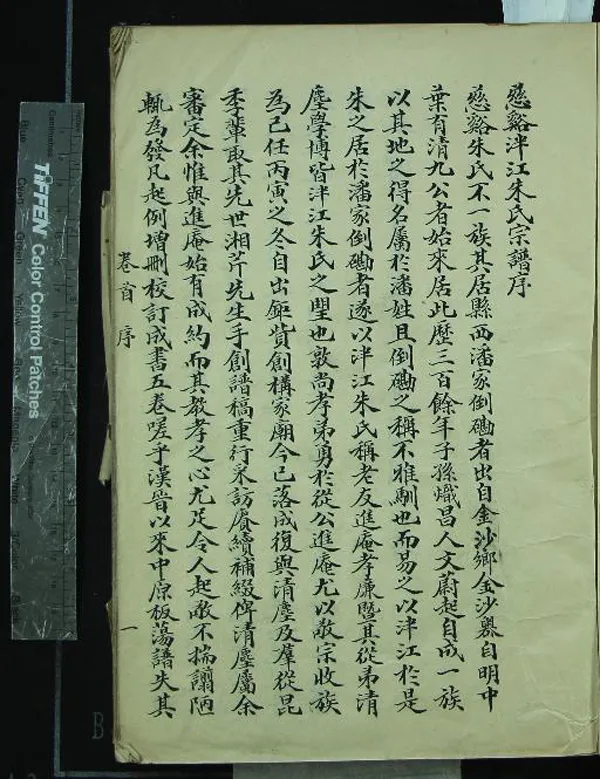 慈谿泮江朱氏宗譜序
慈谿朱氏不一族其居縣西潘家倒磡者出自金沙鄉金沙嶴自明中
葉有清九公者始來居此歷三百餘年子孫熾昌人文蔚起自成一族
以其地之得名屬於潘姓且倒磡之稱不雅馴也而易之以泮江於是
朱之居於潘家倒磡者遂以泮江朱氏稱老友進庵孝廉暨其從弟清
塵學博皆泮江朱氏之朢也敦尚孝弟勇於從公進庵尤以敬宗收族
為己任丙寅之冬自出鉅貲創構家廟今已落成復與清塵及羣從昆
季輩取其先世湘芹先生手創譜稿重行采訪賡續補綴俾清塵屬余
審定余惟與進庵始有成約而其教孝之心尤足令人起敬不揣譾陋
輒為發凡起例增刪校訂成書五卷嗟乎漢晉以來中原板蕩譜失其
卷首 序 一
TIFFEN Color Control Patches
B